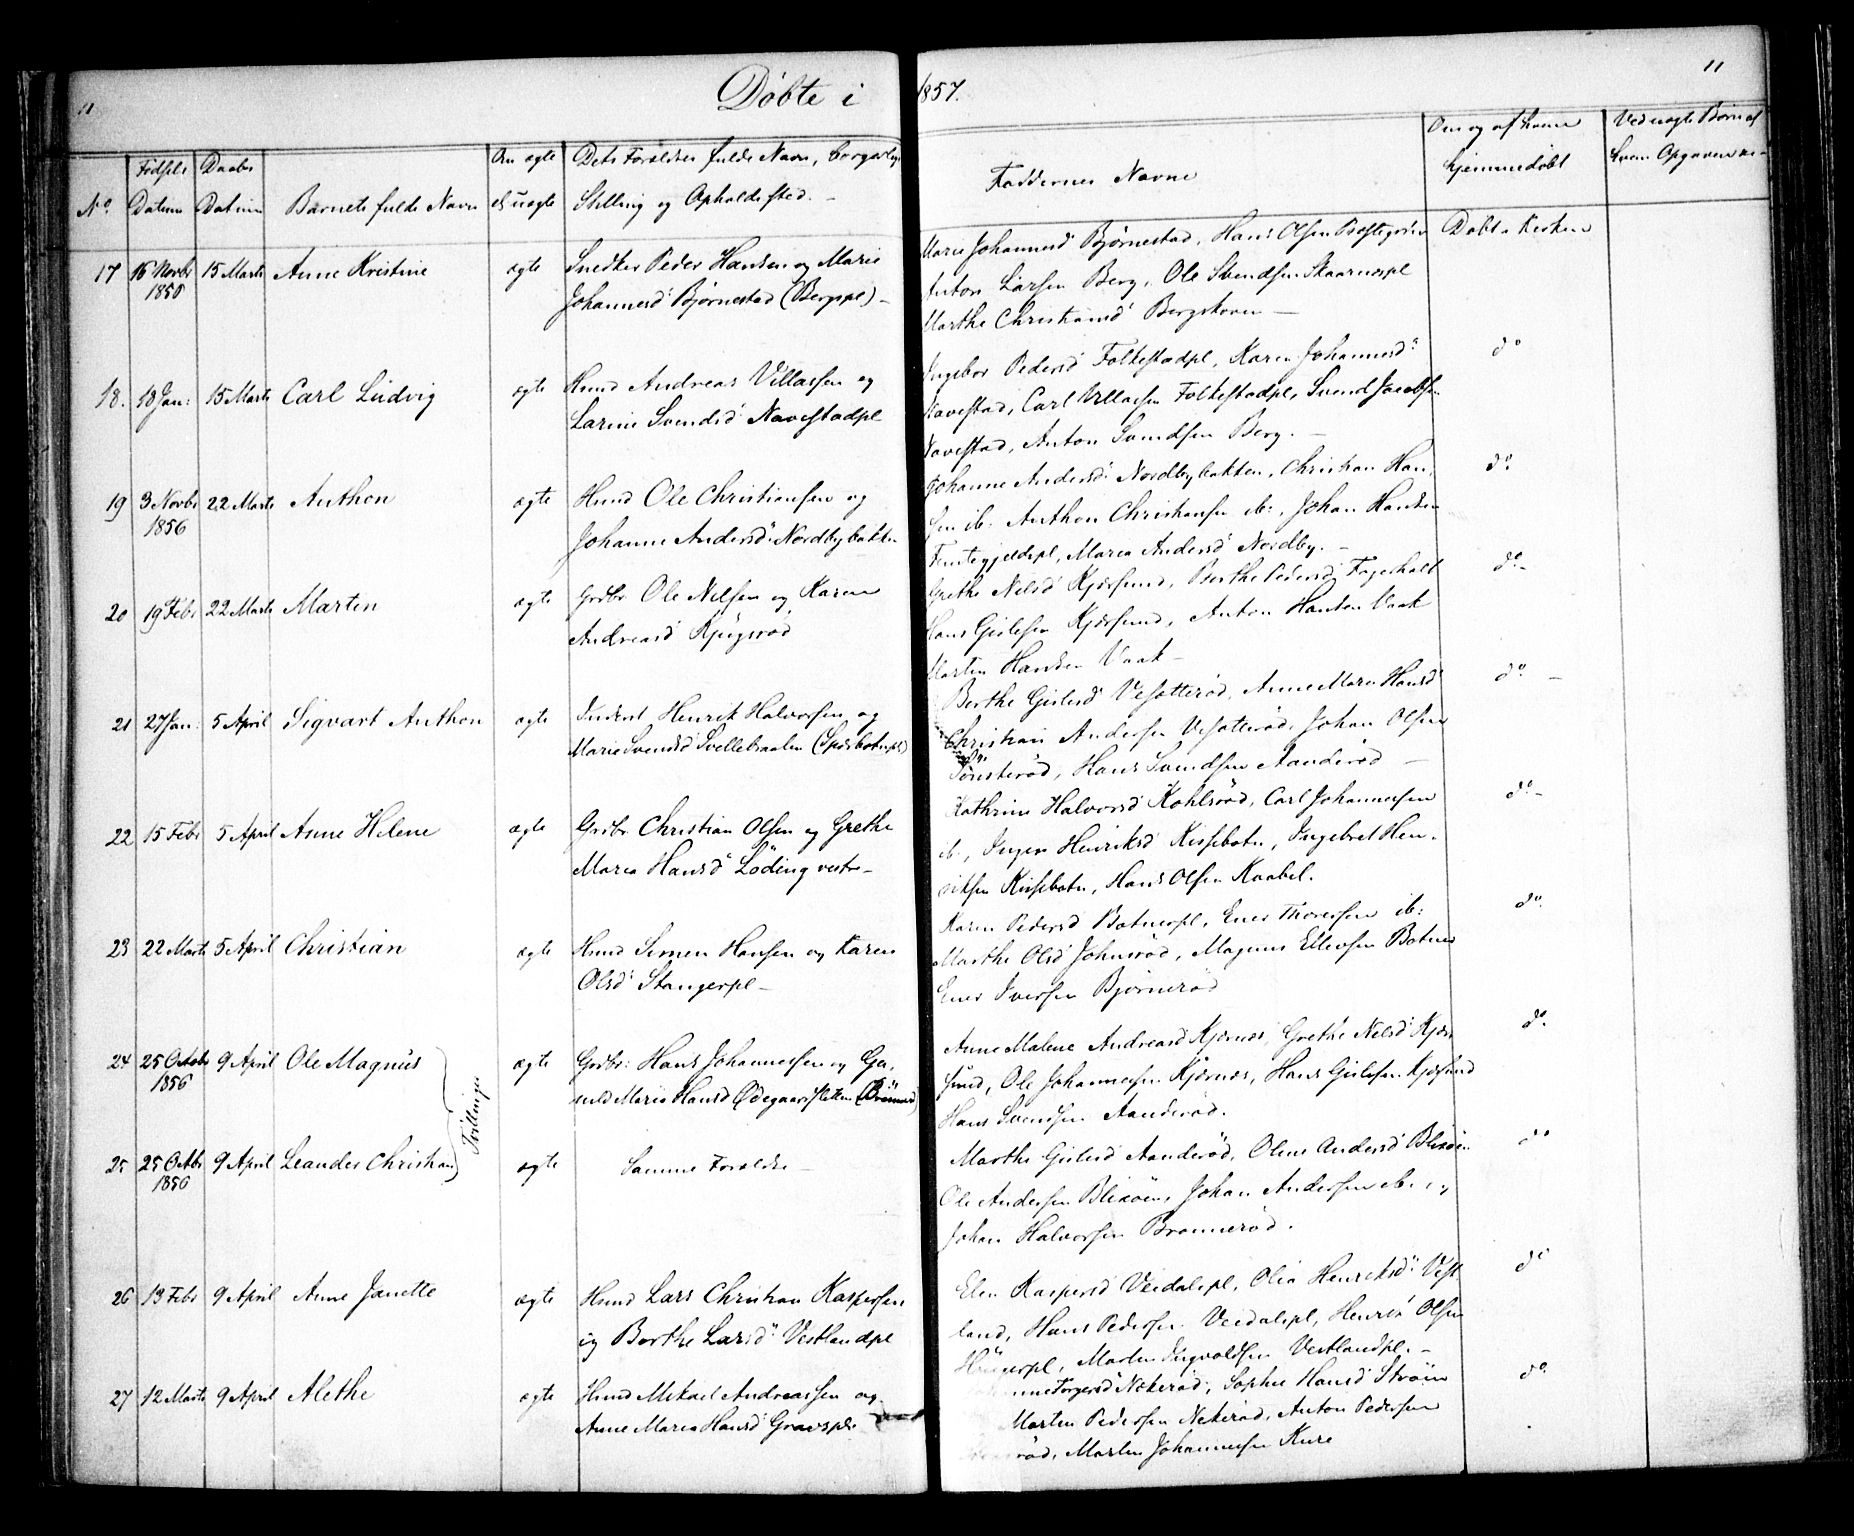 11
Døbte i 1857.
11
No.
Fødsels Datum
Daabs Datum
Barnets fulde Navn
Om ægte el. uægte
Dets Forældres fulde Navn, borgerlige
Stilling og Opholdssted. -
Faddernes Navne
Om og af hvem
hjemmedøbt
Ved uægte Børn af
hvem Opgaven er
17 16 Novbr 15 Marts Anne Kristine ægte Snedker Peder Hansen og Marie
1856
Johannesd Bjørnestad (Bergspl) -
Maren Johannesd Bjørnestad, Hans Olsen
Anton Larsen Berg, Ole Svendsen
Marthe Christiansd Bergskoven -
Døbt i Kirken
18. 18 Jan: 15 Marts Carl Ludvig ægte Hmd Andreas Villassen og
Larine Svendsd Navestadpl
Ingebor Pedersd Folkestadpl, Karen Johannesd
Navestad, Carl Villassen Folkestadpl, Svend Jacobsen
Navestad, Anton Svendsen Berg. -
do
19 3 Novbr 22 Marts Anthon ægte Hmd Ole Christiansen og
1856
Johanne Andersd Nordbybakken
Johanne Andersd Nordbybakken, Christian Han-
sen ib: Anthon Christiansen ib:, Johan Hansen
Maren Andersd Nordby. -
do
20 19 Febr 22 Marts Martin ægte Grdbr Ole Nilsen og Karen
Andreasd
Grethe Nilsd Kjærsund, Berthe Pedersd Fagerholt
Hans Gislesen Kjærsund, Anton Hansen Vaak
Martin Hansen Vaak -
do -
21 27 Jan: 5 April Sigvart Anthon ægte Inderst Henrik Halvorsen og
Marie Svendsd
Berthe Gislesd Vesatterød, Anne Maria Hansd
Christian Andersen Vesatterød, Johan Olsen
Hans Svendsen Aanderød -
do -
22 15 Febr 5 April Anne Helene ægte Grdbr Christian Olsen og Grethe
Maria Hansd Løding vestre -
Kathrine Halvorsd Kohlsrød, Carl Johannesen
ib:, Inger Henriksd Kissebotn, Ingebret Hen-
riksen Kissebotn, Hans Olsen Kaabel.
do -
23 22 Marts 5 April Christian ægte Hmd Simen Hansen og Karen
Olsd Stangerpl -
Karen Pedersd Botnerpl, Ener Thoressen ib:
Marthe Olsd Johnsrød, Magnus Ellevsen Botner
Ener Iversen Bjørnerød
do.
24 25 Octobr 9 April Ole Magnus ægte Grdbr: Hans Johannessen og Gu-
1856
nild Maria Hansd Ødegaardsletten
Tvillinger
Anne Malene Andreasd Kjærnes, Grethe Nilsd Kjær-
sund, Ole Johannessen Kjærnes, Hans Gislesen Kjærsund
Hans Svendsen Aanderød.
do.
25 25 Octbr 9 April Leander Christian ægte Samme Forældre -
1856
Marthe Gislesd Aanderød, Oline Andersd Blixøen
Ole Andersen Blixøen, Johan Andersen ib:, og
Johan Halvorsen Brønnerød.
do
26 13 Febr 9 April Anne Janette ægte Hmd Lars Christian Kaspersen
og Berthe Larsd Vestlandpl
Elen Kaspersd Veidalspl, Olia Henriksd Vest-
land, Hans Pedersen Veidalspl, Henrik Olsen
Martin Ingvoldsen Vestlandpl. -
do
27 12 Marts 9 April Alethe ægte Hmd Mikael Andreassen og
Anne Maria Hansd
Torgersd Nekerød, Sophie Hansd Strøm
Martin Pedersen Nekerød, Anton Pedersen
Martin Johannessen Kure
do